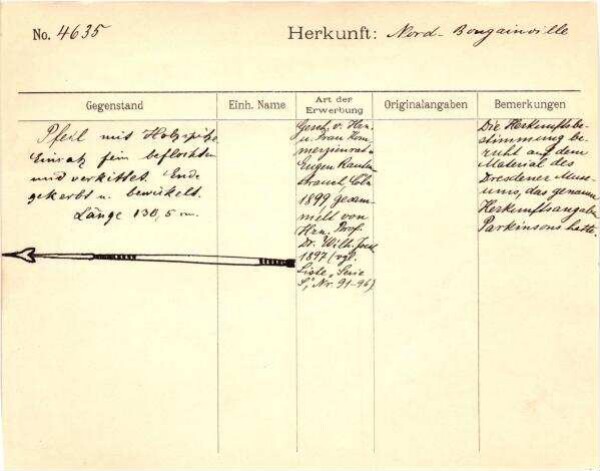 No. 4635
Herkunft: Nord-Bougainville
Gegenstand
Einh. Name
Art der Erwerbung
Originalangaben
Bemerkungen
Pfeil mit Holzspitze
Einsatz fein beflochten
und verkittet. Ende
gekerbt u. bewickelt.
Länge 130,5 cm.
Gesch. v. Hrn.
u. Frau Kom-
merzienrat
Eugen Rauten-
strauch, Cöln
1899 gesam-
melt von
Hrn. Prof.
Dr. Wilh. Joest
1897 (vgl.
Liste, Serie
S, Nr. 91-96)
Die Herkunftsbe-
stimmung be-
ruht auf dem
Material des
Dresdener Muse-
ums, das genaue
Herkunftsangaben
Parkinsons hatte.